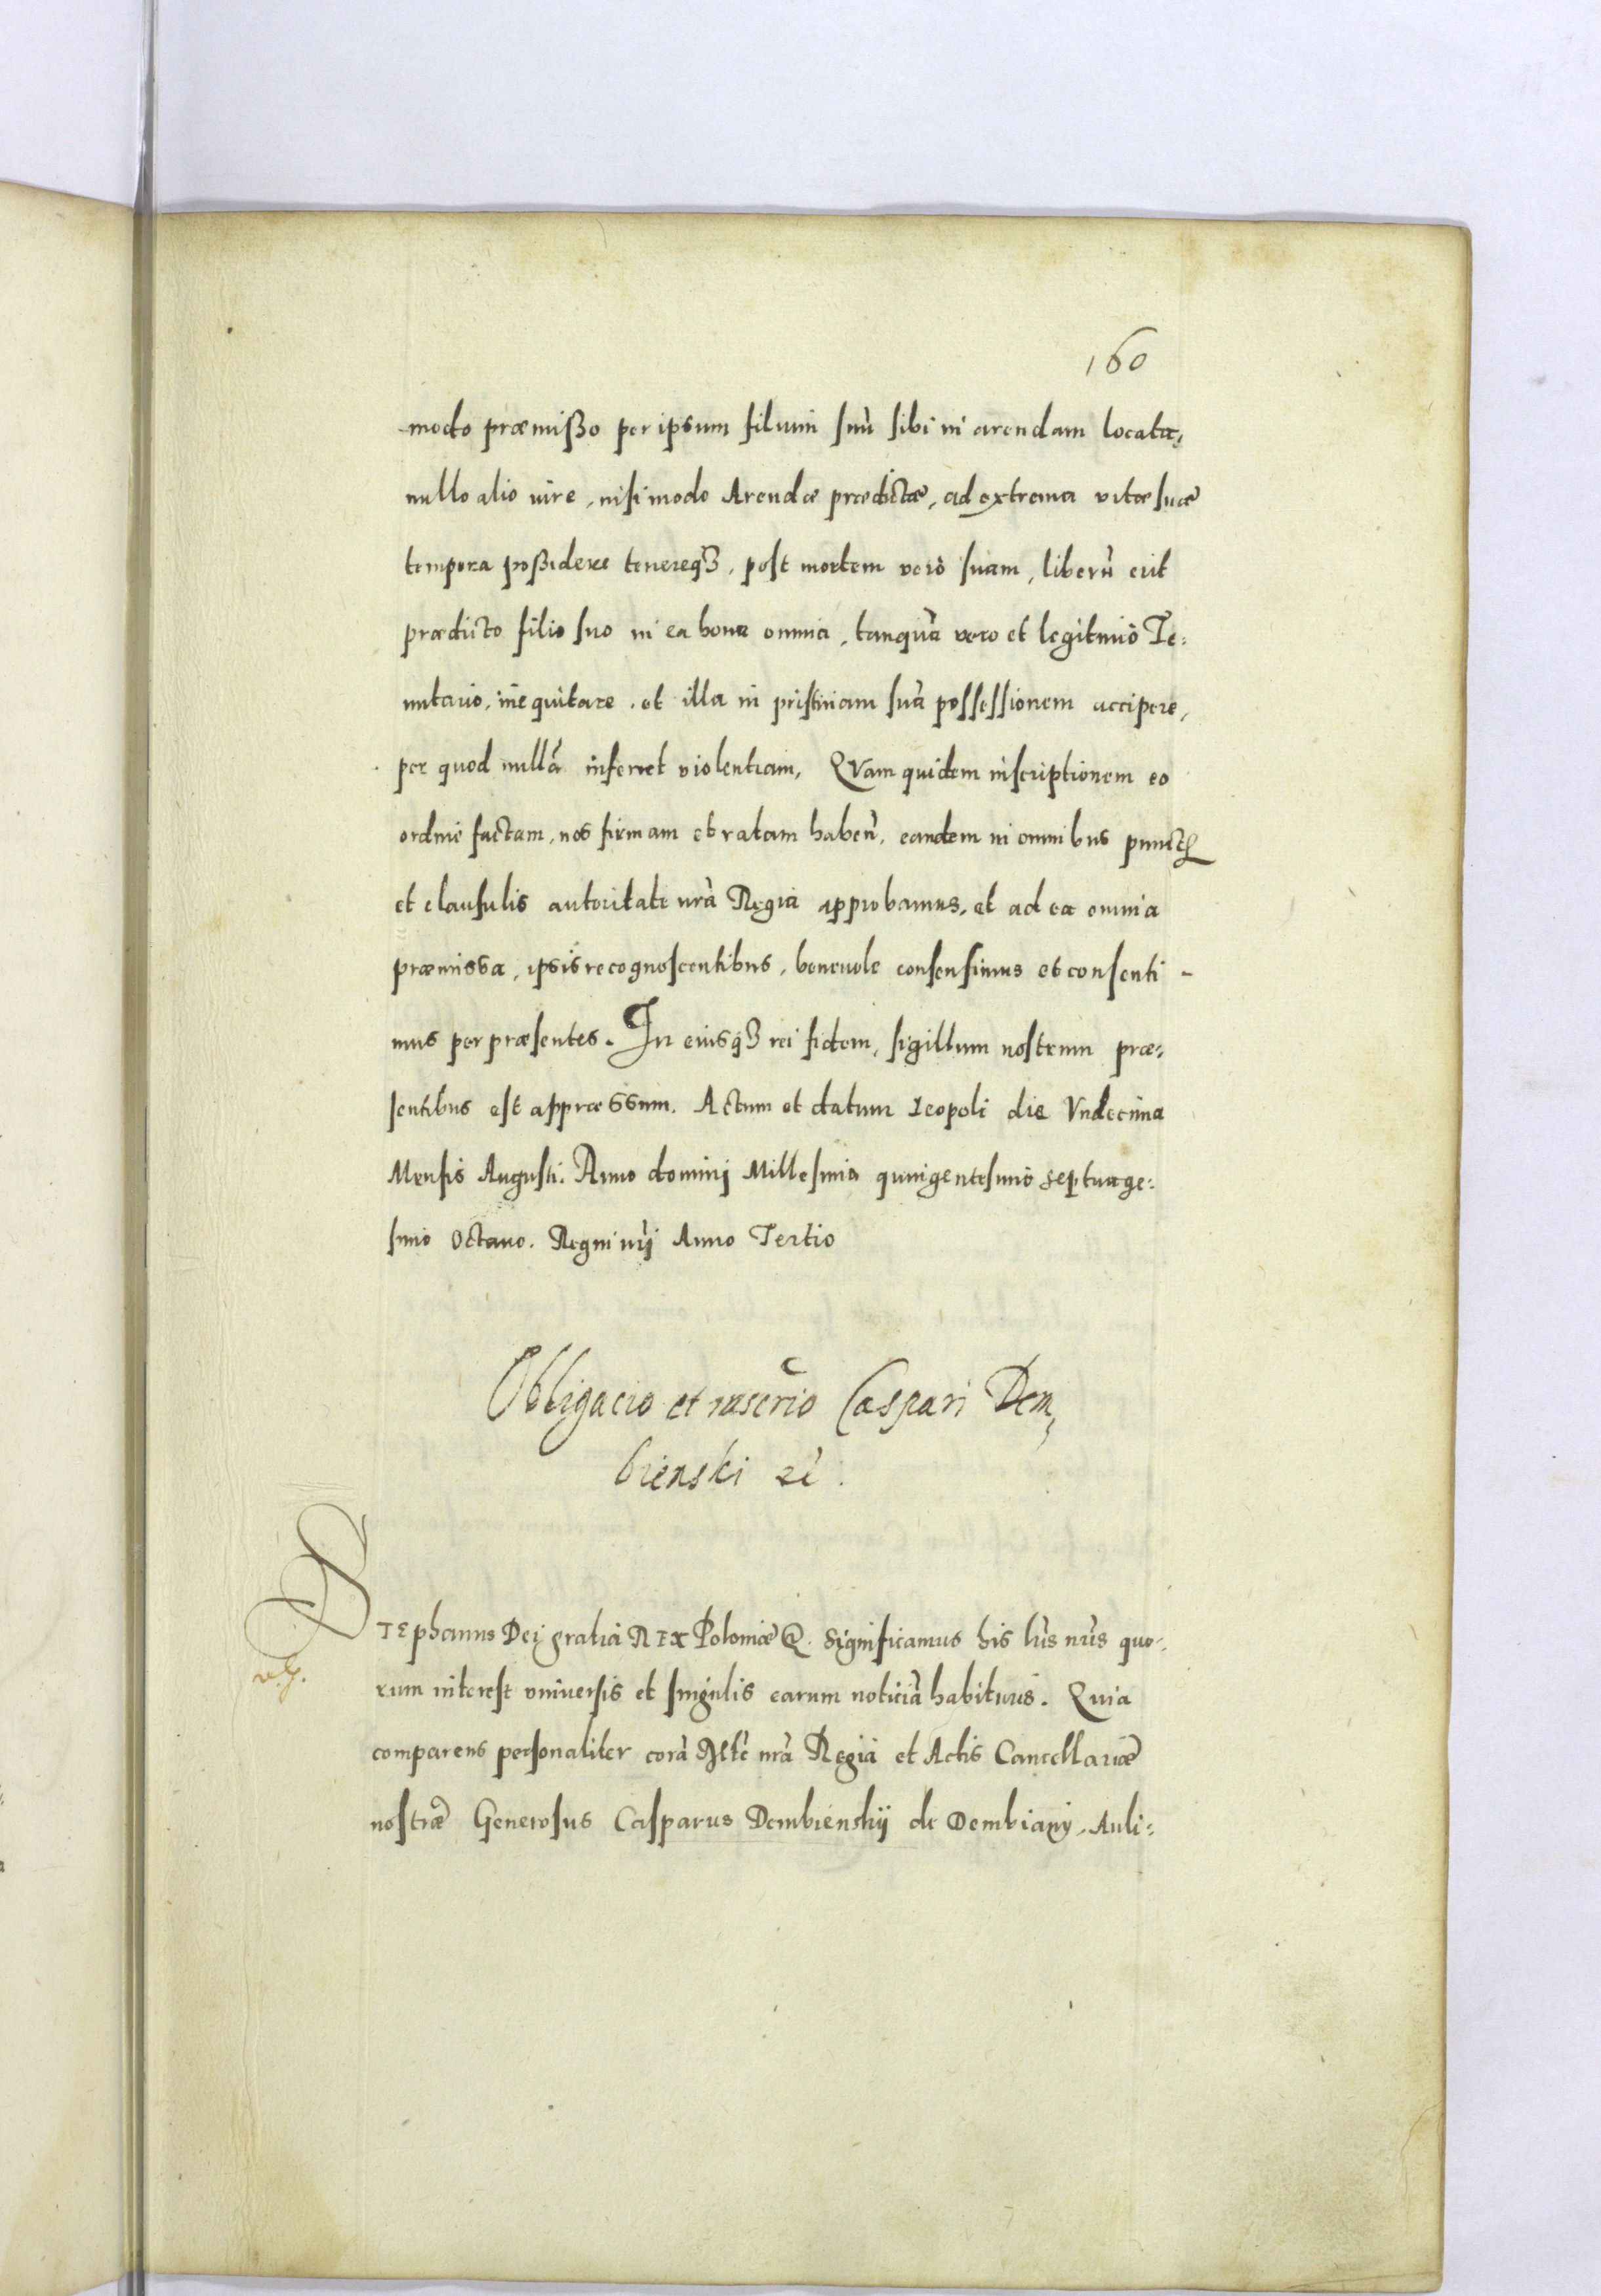 160
modo præmißo per ipsum filium suũ sibi in arendam locata,
nullo alio iure, nisi modo Arendæ prædictæ, ad extrema vitæ suæ
tempora poßidere tenereq3, post mortem verò suam, liberũ erit
prædicto filio suo in ea bona omnia, tanquã vero et legitimo Te:
nutario, inequitare, et illa in pristinam suã possessionem accipere,
per quod nullã inferret violentiam, QVam quidem inscriptionem eo
ordine factam, nos firmam et ratam habeñ, eandem in omnibus punctꝭ
et clausulis autoritate nrã Regia approbamus, et ad ea omnia
præmissa, ipsis recognoscentibus, beneuole consensimus et consenti-
mus per præsentes. In eiusq3 rei fidem, sigillum nostrum præ:
sentibus est appræssum. Actum et datum Leopoli die Vndecima
Mensis Augusti. Anno dominj Millesimo quingentesimo septuage:
simo Octauo. Regni nrj Anno Tertio
Obligacio et inscrio Caspari Dem,
bienski zc.
STEphanus Dej gratia REX Poloniæ &. Significamus his lrĩs nrĩs quo-
rum interest vniuersis et singulis earum noticiã habituris. Quia
v. G.
comparens personaliter corã Mtĕ nrã Regia et Actis Cancellariæ
nostræ Generosus Casparus Dembienskij de Dembiany, Auli: